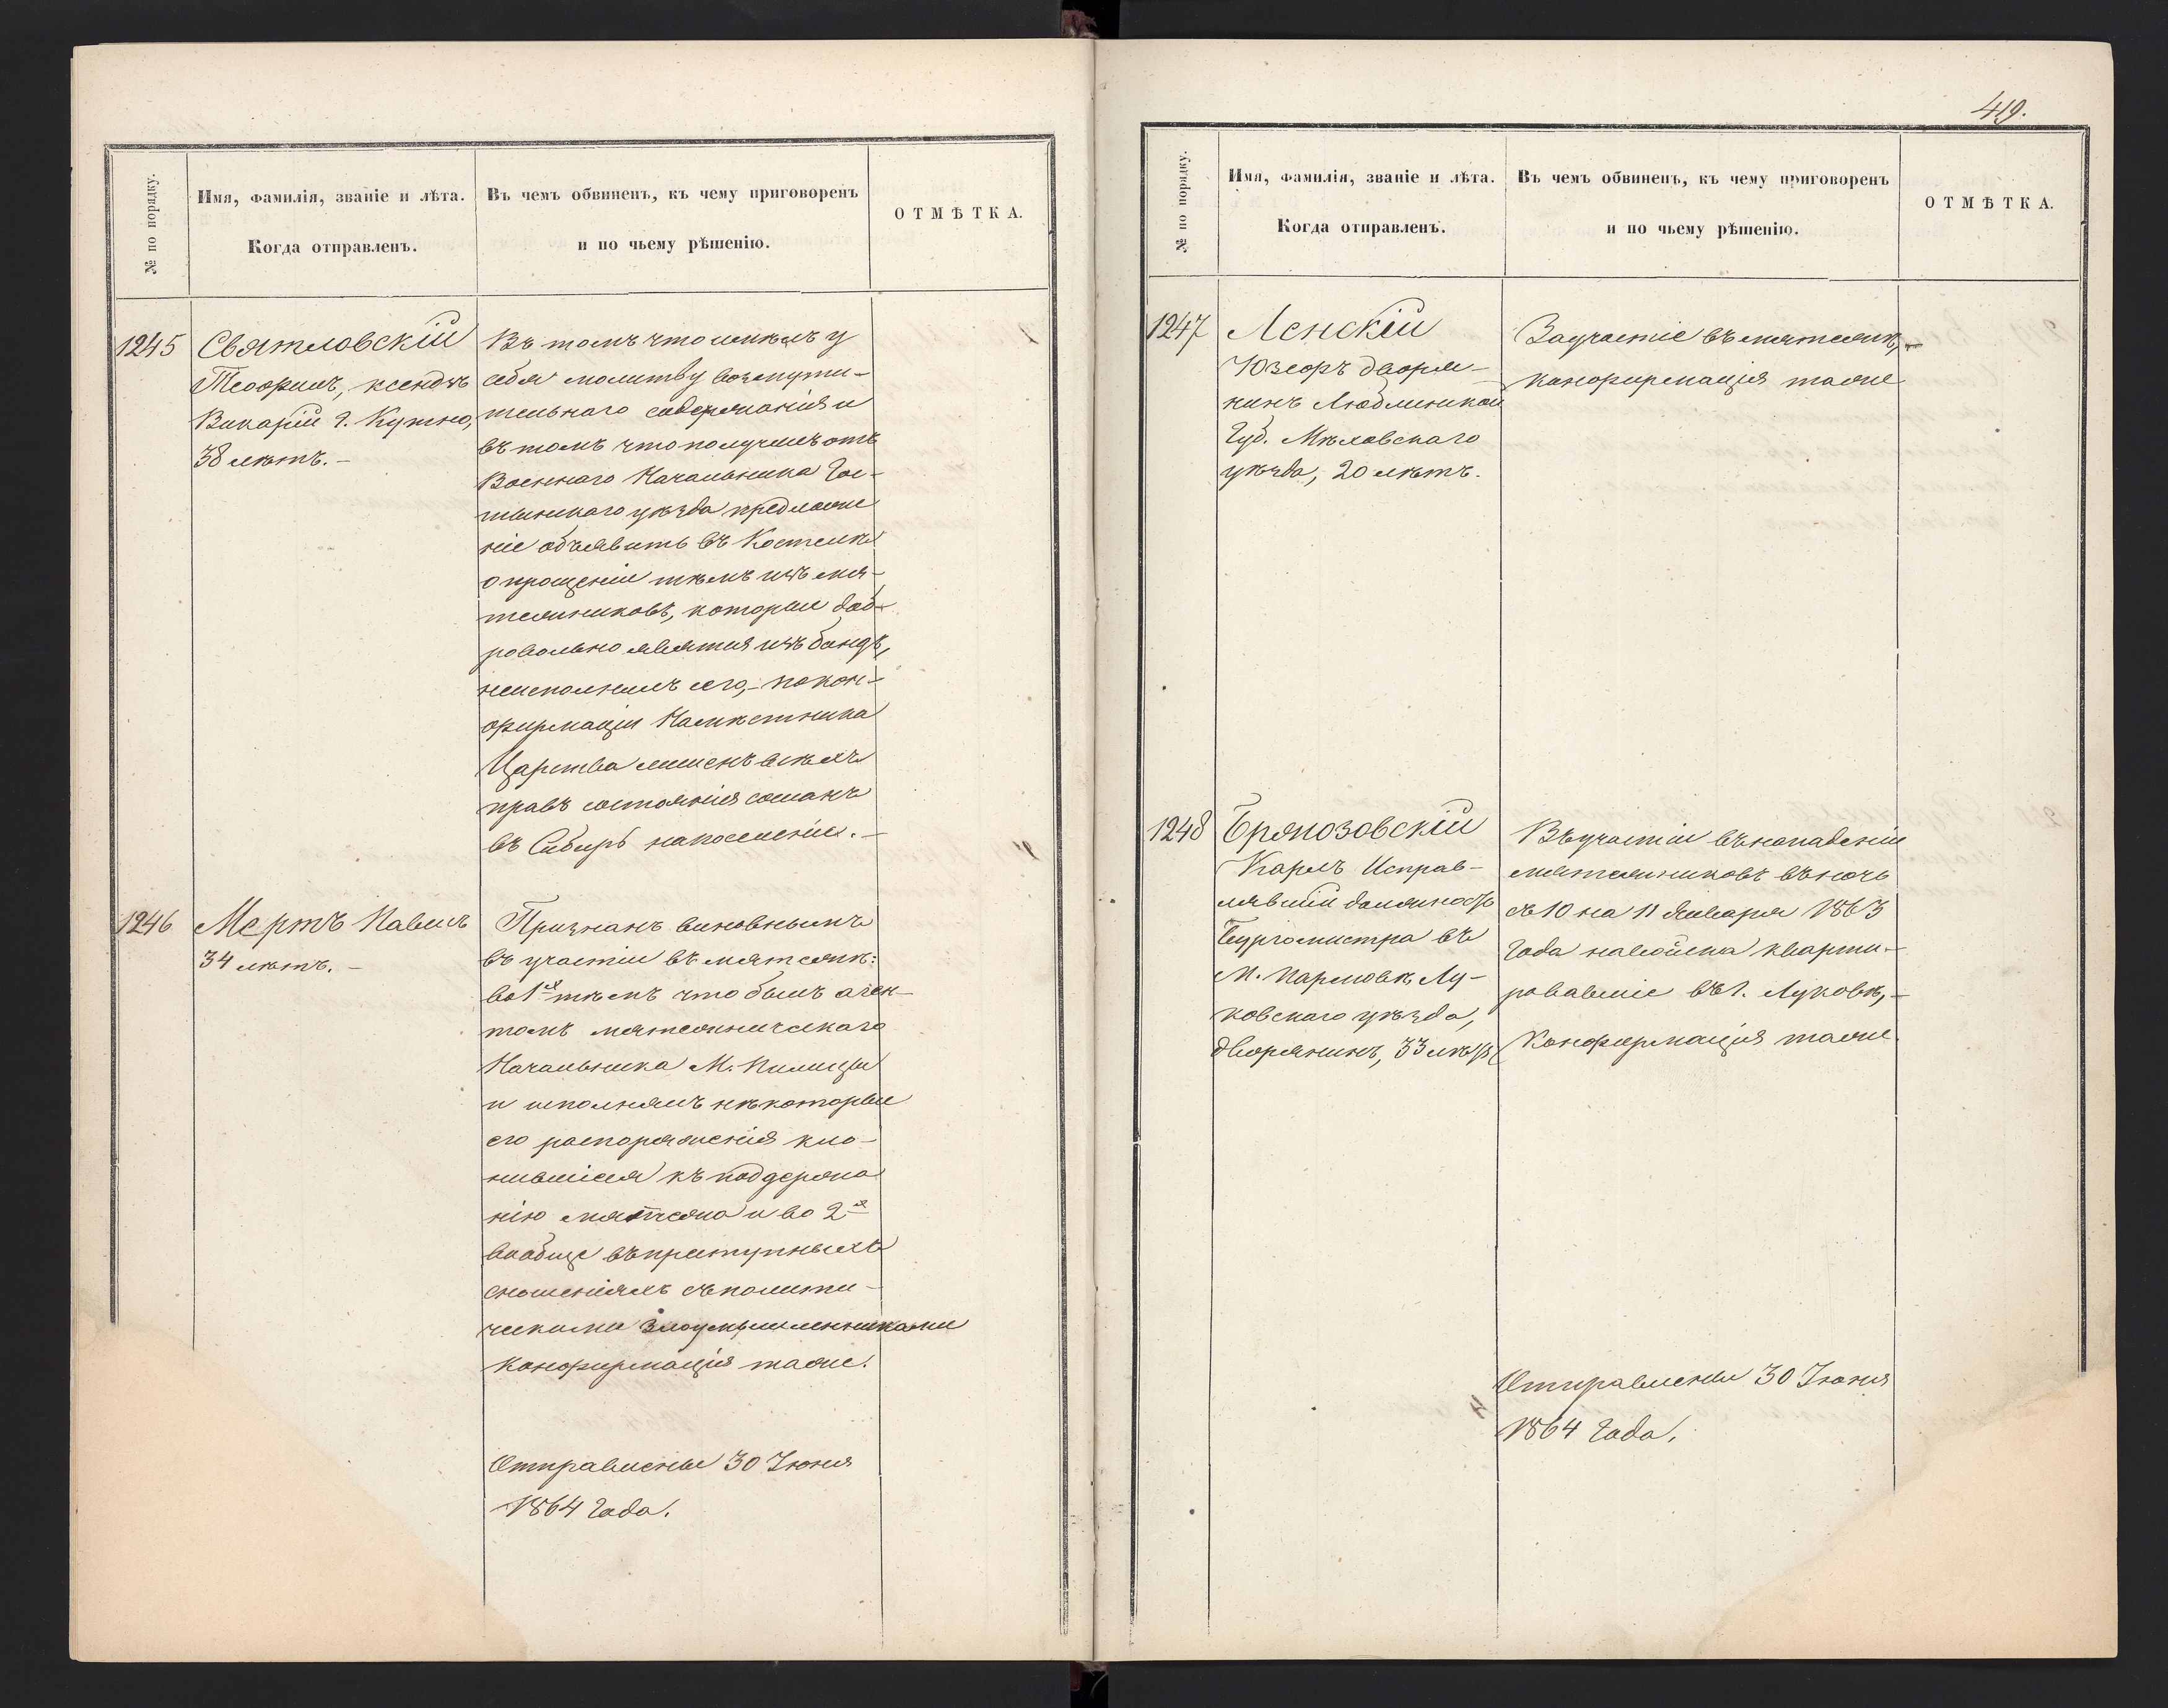 № по порядку.
Имя, фамилія, званіе и лѣта.
Когда отправленъ.
Въ чемъ обвиненъ, къ чему приговоренъ
и по чьему рѣшенію.
ОТМѢТКА.
1245
Святловскій
Теофилъ, ксендзъ
Викарій г. Кутно,
38 лѣтъ.-
Въ томъ что имѣлъ у
себя молитву возмути-
тельнаго содержанія и
въ томъ что получивъ отъ
Военнаго Начальника Гос-
тынскаго уѣзда предложе
ніе объявить въ Костелѣ
о прощеніи тѣмъ изъ мя-
тежниковъ, которые доб-
ровольно явятся изъ бандъ,
неисполнилъ сего,- по кон-
фирмаціи Намѣстника
Царства лишенъ всѣхъ
правъ состоянія сосланъ
въ Сибирь на поселеніе.-
1246
Мертъ Павелъ
34 лѣтъ.-
Признанъ виновнымъ
въ участіи въ мятежѣ:
во 1хъ тѣмъ что былъ аген-
томъ мятежническаго
Начальника М. Пилицы
и исполнялъ нѣкоторые
его распоряженія кло-
нившіеся къ поддержа
нію мятежа и во 2хъ
вообще въ преступныхъ
сношеніяхъ съ полити-
ческими злоумышленниками
Конфирмація таже.
Отправлены 30 Іюня
1864 Года.
419.
№ по порядку.
Имя, фамилія, званіе и лѣта.
Когда отправленъ.
Въ чемъ обвиненъ, къ чему приговоренъ
и по чьему рѣшенію.
ОТМѢТКА.
1247
Ленскій
Юзефъ дворя-
нинъ Люблинской
Губ. Мѣховскаго
уѣзда, 20 лѣтъ.
За участіе въ мятежѣ,-
конфирмація таже
1248
Брякозовскій
Карлъ Исправ-
лявшій должность
Бургомистра въ
М. Лу-
ковскаго уѣзда,
дворянинъ, 33 лѣтъ
Въ участіи въ нападеніи
мятежниковъ въ ночь
съ 10 на 11 Января 1863
Года на войска кварти-
ровавшіе въ г. Луковѣ,-
Конфирмація таже.
Отправлены 30 Іюня
1864 Года.